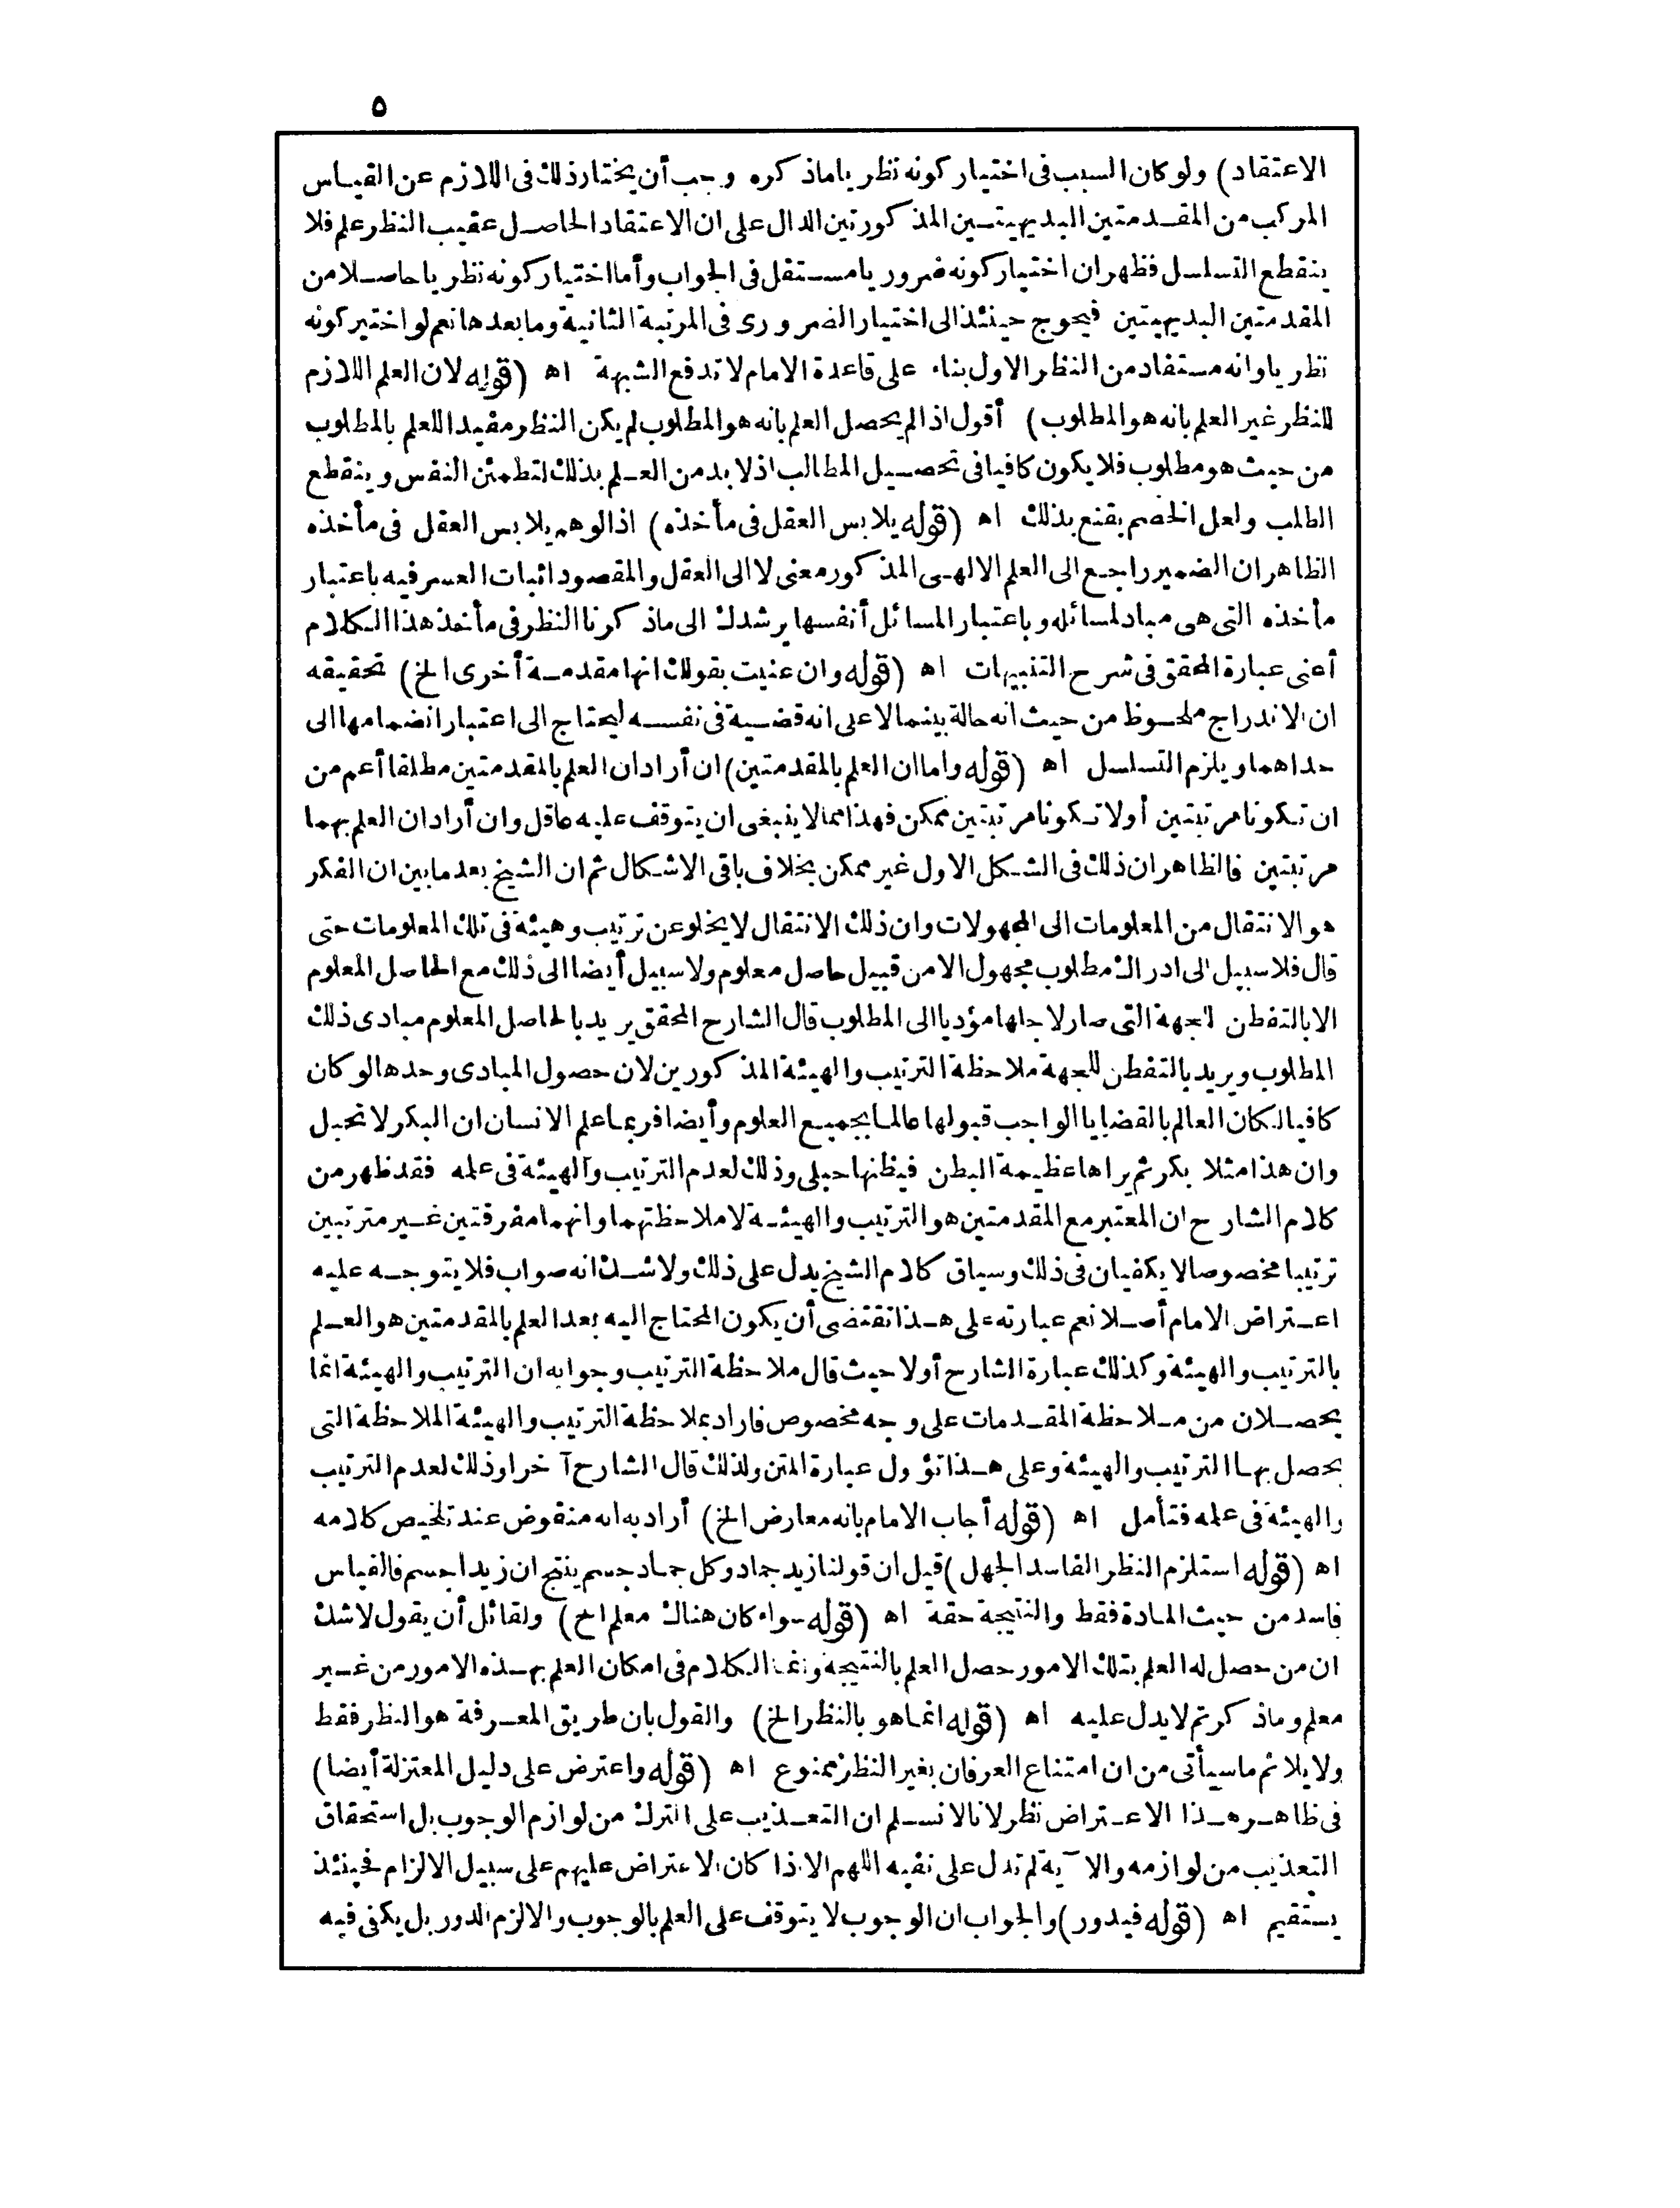 ٥
الاعتقاد) ولو كان السبب فى اختيار كونه نظريا ماذكره وجب أن يختار ذلك فى اللازم عن القياس
المركب من المقدمتين البديهيتين المذكورتين الدال على ان الاعتقاد الحاصل عقيب النظر علم فلا
ينقطع التسلسل فظهر ان اختيار كونه ضروريا مستقل فى الجواب وأما اختيار كونه نظريا حاصلا من
المقدمتين البديهيتين فيحوج حينئذ الى اختيار الضرورى فى المرتبة الثانية وما بعدها نعم لو اختير كونه
نظريا وانه مستفاد من النظر الاول بناء على قاعدة الامام لا تدفع الشبهة اه (قوله لان العلم اللازم
للنظر غير العلم بانه هو المطلوب) أقول اذا لم يحصل العلم بانه هو المطلوب لم يكن النظر مفيدا للعلم بالمطلوب
من حيث هو مطلوب فلا يكون كافيا فى تحصيل المطالب اذ لا بد من العلم بذلك لتطمئن النفس وينقطع
الطلب ولعل الخصم يقنع بذلك اه (قوله يلابس العقل فى مأخذه) اذ الوهم يلابس العقل فى مأخذه
الظاهر ان الضمير راجع الى العلم الالهى المذكور معنى لا الى العقل والمقصود اثبات العسر فيه باعتبار
مأخذه التى هى مباد لمسائله وباعتبار المسائل أنفسها يرشدك الى ماذكرنا النظر فى مأخذ هذا الكلام
أعنى عبارة المحقق فى شرح التنبيهات اه (قوله وان عنيت بقولك انها مقدمة أخرى الخ) تحقيقه
ان الاندراج ملحوظ من حيث انه حالة بينهما لا على انه قضية فى نفسه ليحتاج الى اعتبار انضمامها الى
حداهما ويلزم التسلسل اه (قوله واما ان العلم بالمقدمتين) ان أراد ان العلم بالمقدمتين مطلقا أعم من
ان تكونا مرتبتين أولا تكونا مرتبتين ممكن فهذا مما لا ينبغى ان يتوقف عليه عاقل وان أراد ان العلم بهما
مرتبتين فالظاهر ان ذلك فى الشكل الاول غير ممكن بخلاف باقى الاشكال ثم ان الشيخ بعد ما بين ان الفكر
هو الانتقال من المعلومات الى المجهولات وان ذلك الانتقال لا يخلو عن ترتيب وهيئة فى تلك المعلومات حتى
قال فلا سبيل الى ادراك مطلوب مجهول الا من قبيل حاصل معلوم ولا سبيل أيضا الى ذلك مع الحاصل المعلوم
الا بالتفطن للجهة التى صار لاجلها مؤديا الى المطلوب قال الشارح المحقق يريد بالحاصل المعلوم مبادى ذلك
المطلوب ويريد بالتفطن للجهة ملاحظة الترتيب والهيئة المذكورين لان حصول المبادى وحدها لو كان
كافيا لكان العالم بالقضايا الواجب قبولها عالما بجميع العلوم وأيضا فربما علم الانسان ان البكر لا تحبل
وان هذا مثلا بكر ثم يراها عظيمة البطن فيظنها حبلى وذلك لعدم الترتيب والهيئة فى علمه فقد ظهر من
كلام الشارح ان المعتبر مع المقدمتين هو الترتيب والهيئة لا ملاحظتهما وانهما مفرقتين غير مترتبين
ترتيبا مخصوصا لا يكفيان فى ذلك وسياق كلام الشيخ يدل على ذلك ولا شك انه صواب فلا يتوجه عليه
اعتراض الامام أصلا نعم عبارته على هذا تقتضى أن يكون المحتاج اليه بعد العلم بالمقدمتين هو العلم
بالترتيب والهيئة وكذلك عبارة الشارح أولا حيث قال ملاحظة الترتيب وجوابه ان الترتيب والهيئة انما
يحصلان من ملاحظة المقدمات على وجه مخصوص فاراد بملاحظة الترتيب والهيئة الملاحظة التى
يحصل بها الترتيب والهيئة وعلى هذا تؤول عبارة المتن ولذلك قال الشارح آخرا وذلك لعدم الترتيب
والهيئة فى علمه فتأمل اه (قوله أجاب الامام بانه معارض الخ) أراد به انه منقوض عند تلخيص كلامه
اه (قوله استلزم النظر الفاسد الجهل) قيل ان قولنا زيد جماد وكل جماد جسم ينتج ان زيدا جسم فالقياس
فاسد من حيث المادة فقط والنتيجة حقة اه (قوله سواء كان هناك معلم الخ) ولقائل أن يقول لا شك
ان من حصل له العلم بتلك الامور حصل العلم بالنتيجة وانما الكلام فى امكان العلم بهذه الامور من غير
معلم وما ذكرتم لا يدل عليه اه (قوله انما هو بالنظر الخ) والقول بان طريق المعرفة هو النظر فقط
ولا يلائم ما سيأتى من ان امتناع العرفان بغير النظر ممنوع اه (قوله واعترض على دليل المعتزلة أيضا)
فى ظاهر هذا الاعتراض نظر لانا لا نسلم ان التعذيب على الترك من لوازم الوجوب بل استحقاق
التعذيب من لوازمه والآية لم تدل على نفيه اللهم الا اذا كان الاعتراض عليهم على سبيل الالزام فحينئذ
يستقيم اه (قوله فيدور) والجواب ان الوجوب لا يتوقف على العلم بالوجوب والا لزم الدور بل يكفى فيه